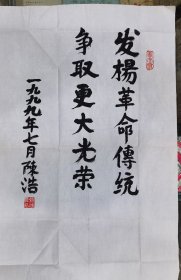 发楊革命傳统
争取更大光荣
一九九九年七月陈浩